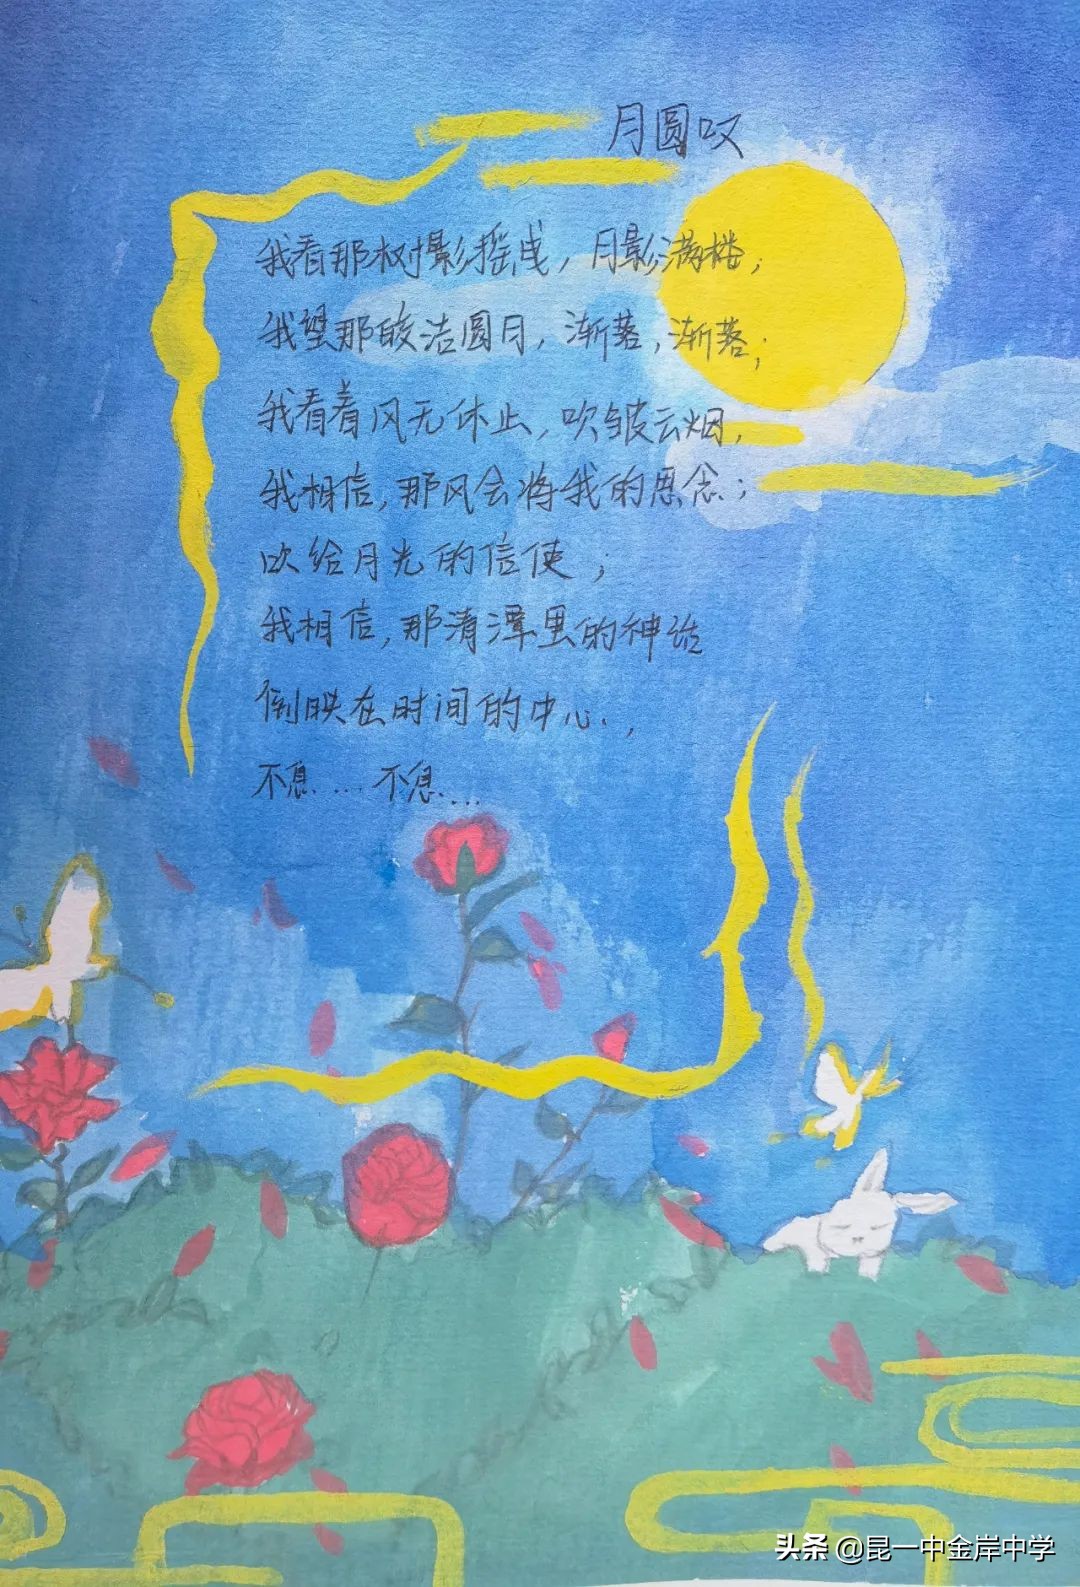 月圆叹
我看那树影摇曳，月影满楼；
我望那皎洁圆月，渐落，渐落；
我看着风无休止，吹皱云烟，
我相信，那风会将我的思念；
吹给月光的信使；
我相信，那清潭里的神话
倒映在时间的中心.，
不息……不息……
头条 @昆一中金岸中学